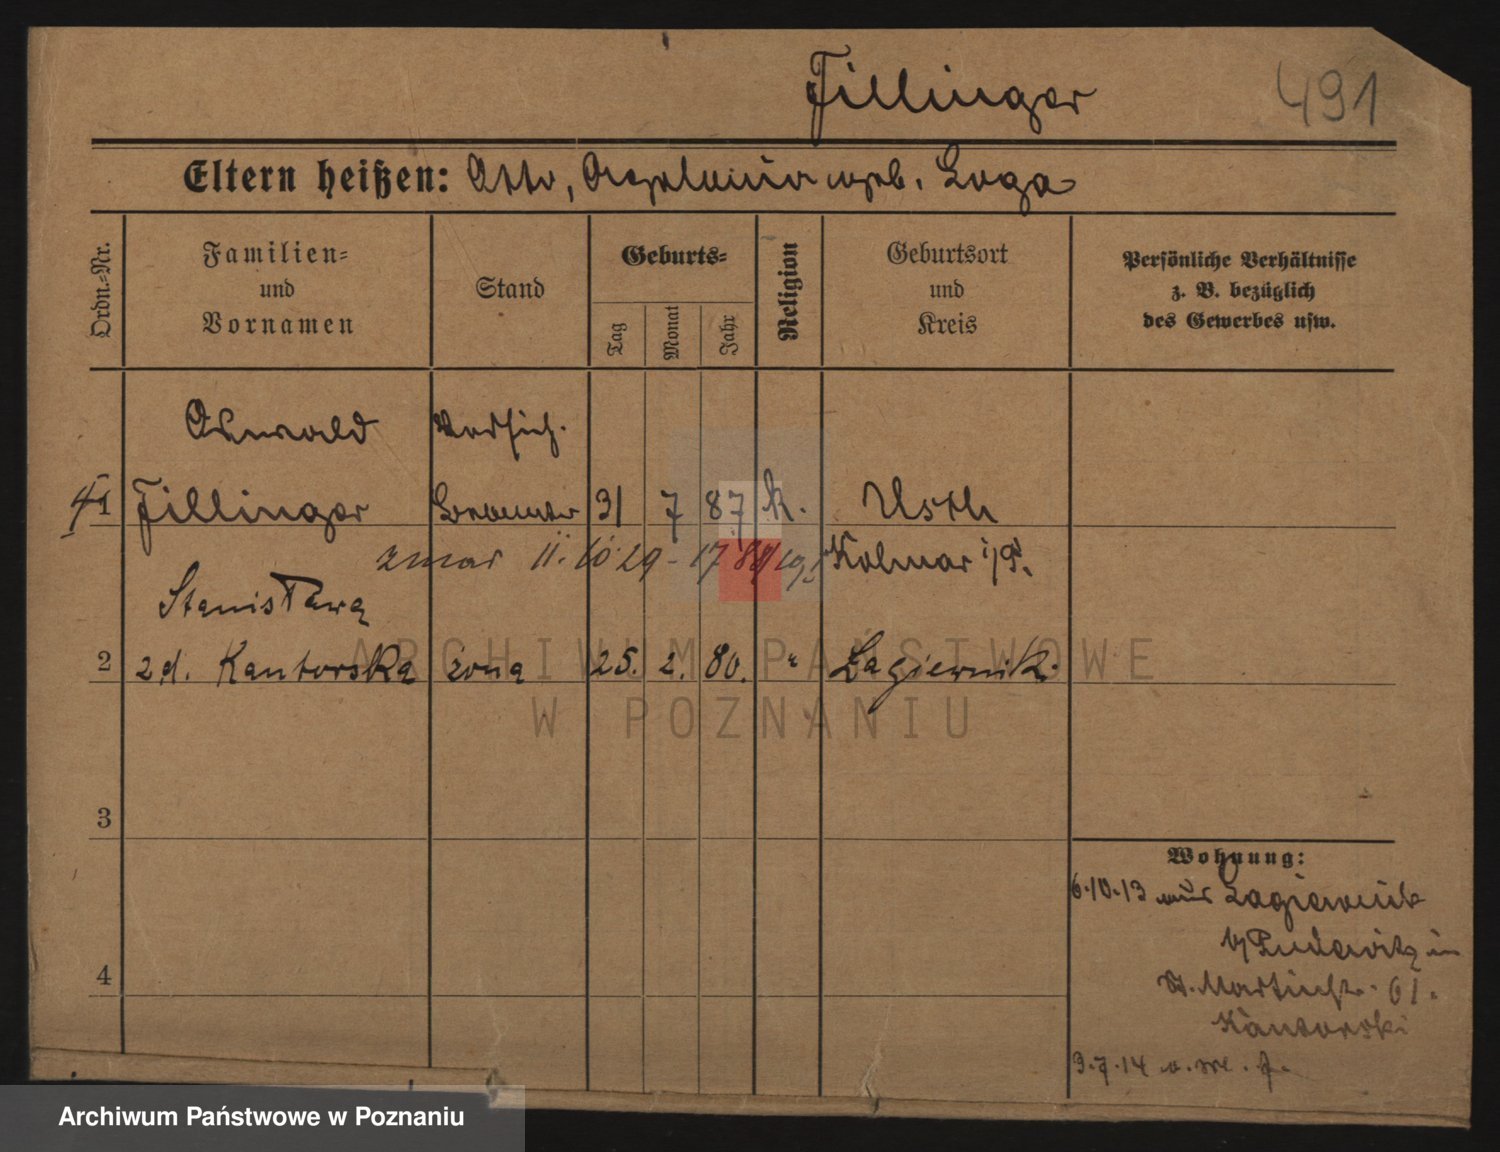 Fillinger
491
Eltern heißen: Otto, geb. Loga
Ordn.-Nr.
Familien- und Vornamen
Stand
Geburts-
Tag
Monat
Jahr
Religion
Geburtsort und Kreis
Persönliche Verhältnisse z. B. bezüglich des Gewerbes usw.
Oswald Versich.
1 Fillinger Beamter 31 7 87 k. Usch
zmar 11.10.29 - Kolmar i/P.
Stanisława
2 zd. Kantorska żona 25. 2. 80. " Łagiewnik.
3
4
Wohnung:
6.10.13 aus Lagiewnik
b/Pudewitz in
St. Martinstr. 61.
Kantorski
3.7.14
ARCHIWUM PAŃSTWOWE
W POZNANIU
Archiwum Państwowe w Poznaniu